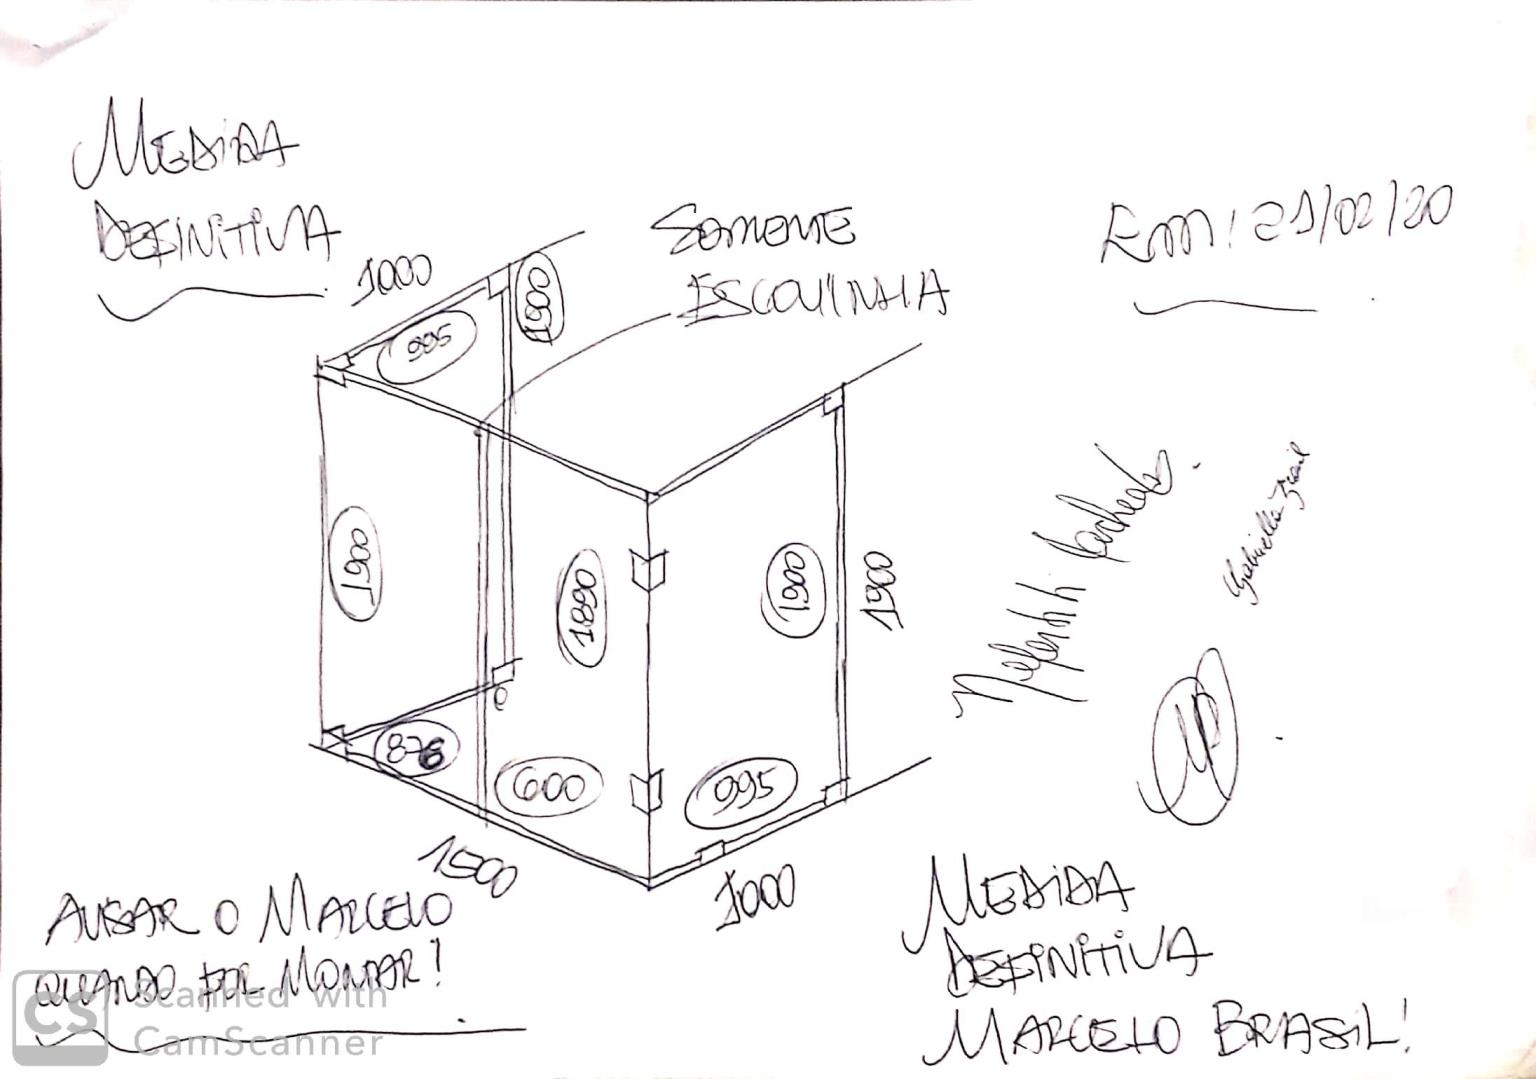 MEDIDA
DEFINITIVA
SOMENTE
ESCOUINHIA
Em: 21/02/20
1000
1900
995
1900
1890
1900
1900
878
600
995
1500
1000
Gabriella Brasil
AVISAR O MARCELO
QUANDO FOR MONTAR!
MEDIDA
DEFINITIVA
MARCELO BRASIL!
CS Scanned with
CamScanner